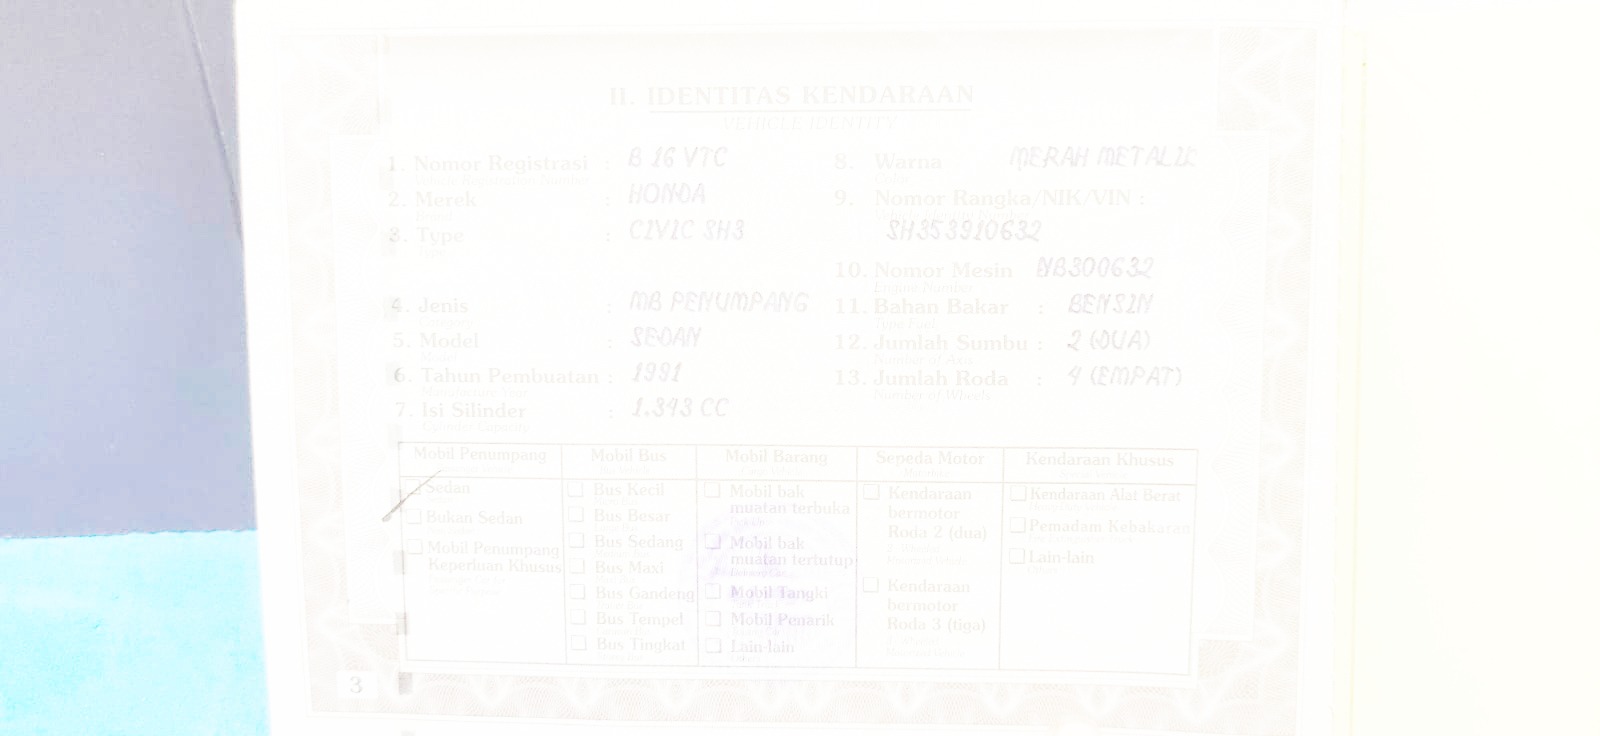 II. IDENTITAS KENDARAAN
VEHICLE IDENTITY
1. Nomor Registrasi : B 16 VTC
Vehicle Registration Number
2. Merek : HONDA
Brand
3. Type : CIVIC SH3
Type
4. Jenis : MB PENUMPANG
Category
5. Model : SEDAN
Model
6. Tahun Pembuatan : 1991
Manufacture Year
7. Isi Silinder : 1.343 CC
Cylinder Capacity
8. Warna MERAH METALIK
Color
9. Nomor Rangka/NIK/VIN :
SH353910632
10. Nomor Mesin NB300632
Engine Number
11. Bahan Bakar : BENSIN
Type Fuel
12. Jumlah Sumbu : 2 (DUA)
Number of Axis
13. Jumlah Roda : 4 (EMPAT)
Number of Wheels
Mobil Penumpang
Sedan
Bukan Sedan
Mobil Penumpang
Keperluan Khusus
Mobil Bus
Bus Kecil
Bus Besar
Bus Sedang
Bus Maxi
Bus Gandeng
Bus Tempel
Bus Tingkat
Mobil Barang
Mobil bak
muatan terbuka
Mobil bak
muatan tertutup
Mobil Tangki
Mobil Penarik
Lain-lain
Sepeda Motor
Kendaraan
bermotor
Roda 2 (dua)
Kendaraan
bermotor
Roda 3 (tiga)
Kendaraan Khusus
Kendaraan Alat Berat
Pemadam Kebakaran
Lain-lain
3